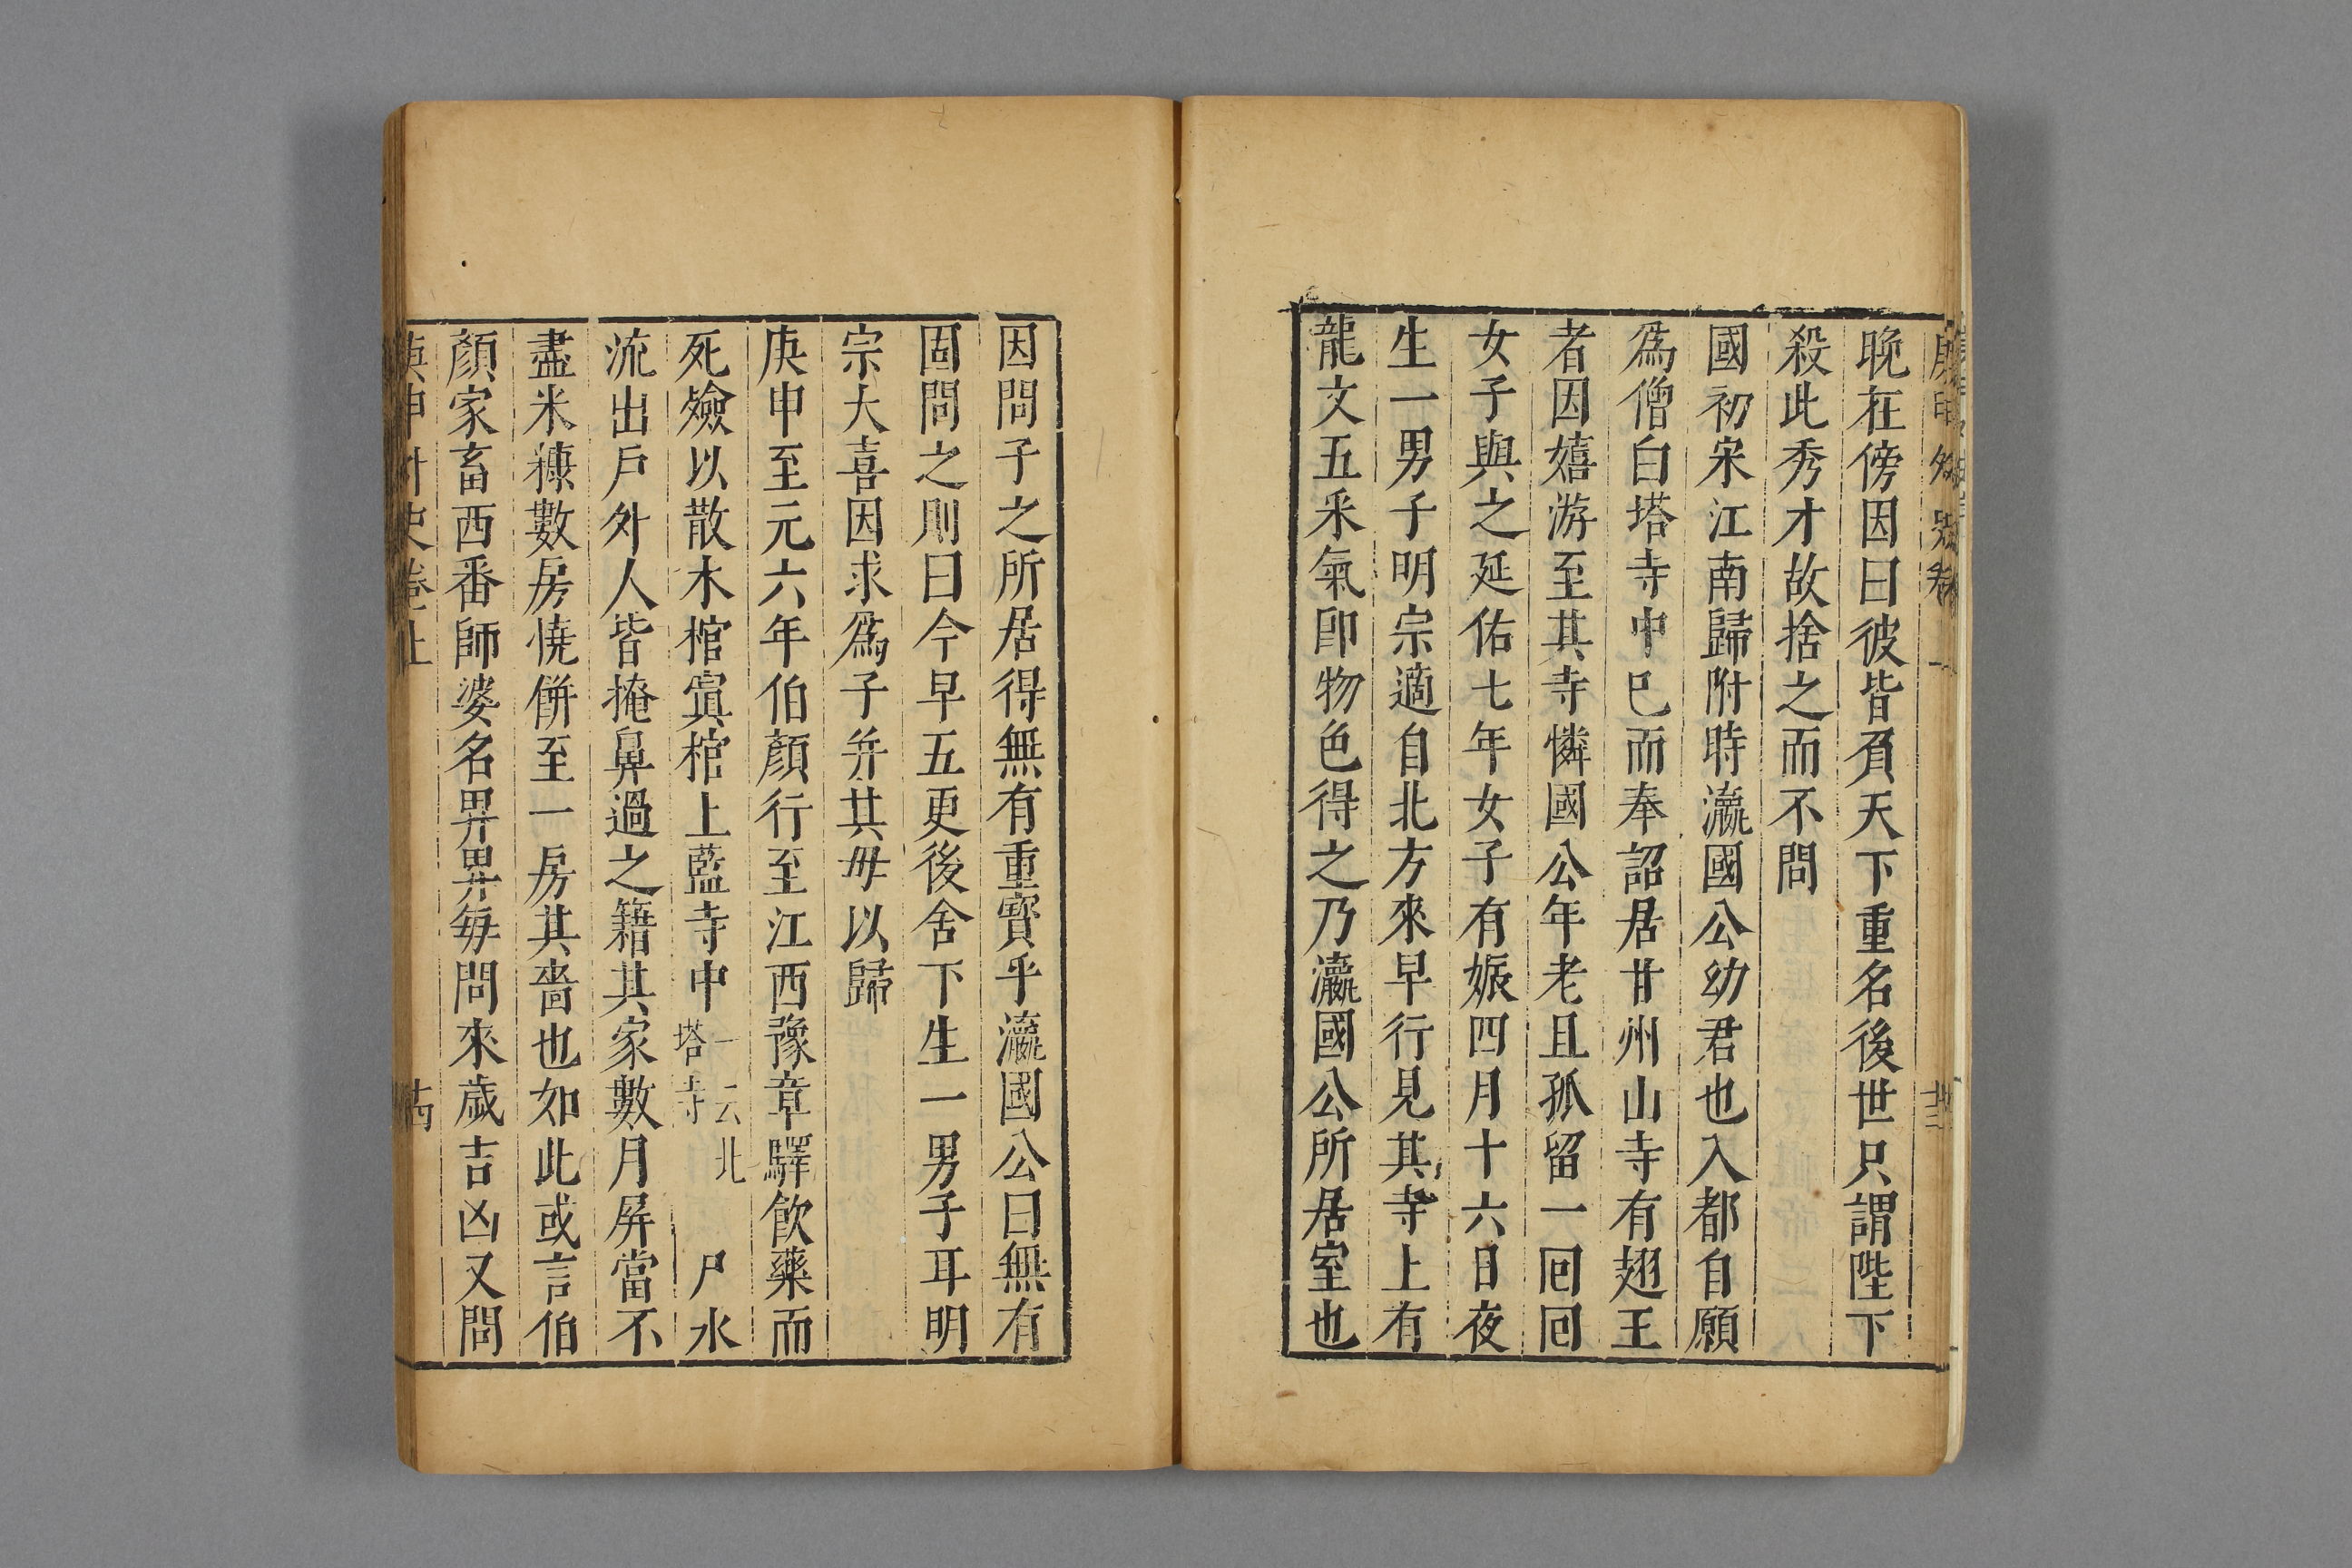 晚在傍因曰彼皆負天下重名後世只謂陛下
殺此秀才故捨之而不問
國初宋江南歸附時瀛國公幼君也入都自願
爲僧白塔寺中已而奉詔居甘州山寺有趐王
者因嬉游至其寺憐國公年老且孤留一囘囘
女子與之延佑七年女子有娠四月十六日夜
生一男子明宗適自北方來早行見其寺上有
龍文五采氣卽物色得之乃瀛國公所居室也
因問子之所居得無有重寳乎瀛國公曰無有
固問之則曰今早五更後舍下生一男子耳明
宗大喜因求爲子并其母以歸
庚申至元六年伯顏行至江西豫章驛飮藥而
死殮以散木棺寘棺上藍寺中一云北塔寺尸水
流出戶外人皆掩鼻過之籍其家數月屏當不
盡米糠數房燒餅至一房其嗇也如此或言伯
顏家畜西番師婆名畀畀每問來歲吉凶又問
庚申外史卷上 十四